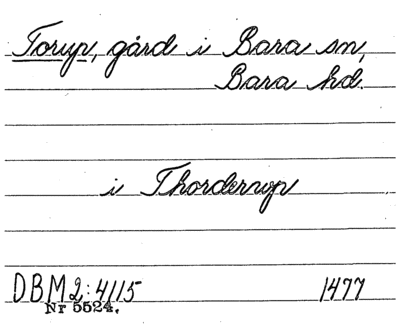 Torup, gård i Bara sn,
Bara hd.
i Thorderup
DBM 2:4115 1477
Nr 5524.